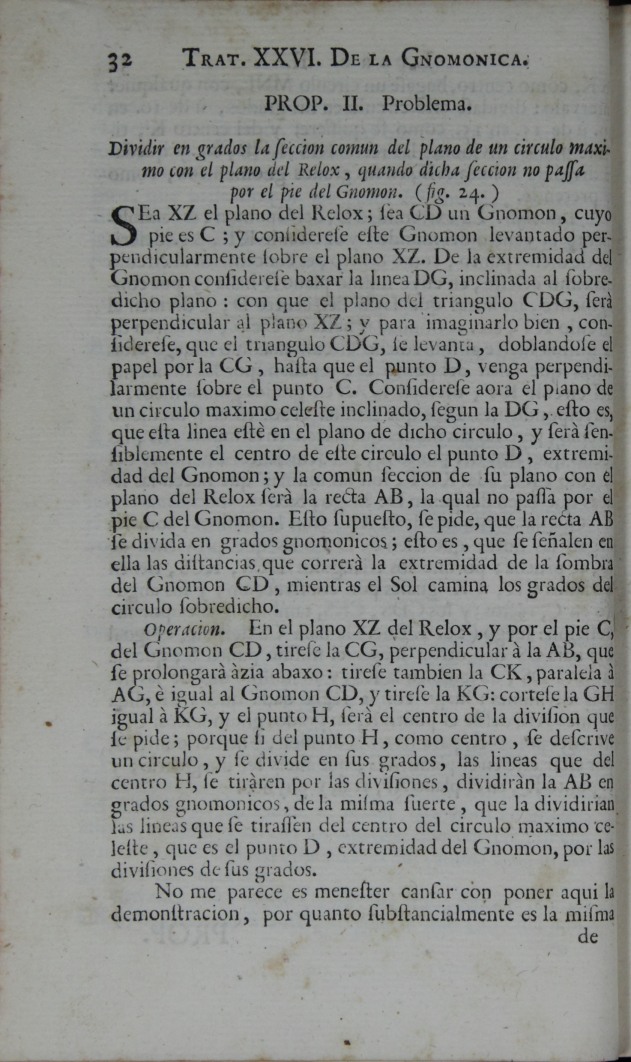 32 TRAT. XXVI. DE LA GNOMONICA.
PROP. II. Problema.
Dividir en grados la ſeccion comun del plano de un circulo maxi-
mo con el plano del Relox, quando dicha ſeccion no paſſa
por el pie del Gnomon. (fig. 24.)
SEa XZ el plano del Relox; ſea CD un Gnomon, cuyo
pie es C; y conſidereſe eſte Gnomon levantado per-
pendicularmente ſobre el plano XZ. De la extremidad del
Gnomon conſidereſe baxar la linea DG, inclinada al ſobre-
dicho plano: con que el plano del triangulo CDG, ſerà
perpendicular al plano XZ; y para imaginarlo bien, con-
ſidereſe, que el triangulo CDG, ſe levanta, doblandoſe el
papel por la CG, haſta que el punto D, venga perpendi-
larmente ſobre el punto C. Conſidereſe aora el plano de
un circulo maximo celeſte inclinado, ſegun la DG, eſto es,
que eſta linea eſtè en el plano de dicho circulo, y ſerà ſen-
ſiblemente el centro de eſte circulo el punto D, extremi-
dad del Gnomon; y la comun ſeccion de ſu plano con el
plano del Relox ſerà la recta AB, la qual no paſſa por el
pie C del Gnomon. Eſto ſupueſto, ſe pide, que la recta AB
ſe divida en grados gnomonicos; eſto es, que ſe ſeñalen en
ella las diſtancias que correrà la extremidad de la ſombra
del Gnomon CD, mientras el Sol camina los grados del
circulo ſobredicho.
Operacion. En el plano XZ del Relox, y por el pie C,
del Gnomon CD, tireſe la CG, perpendicular à la AB, que
ſe prolongarà àzia abaxo: tireſe tambien la CK, paralela à
AG, è igual al Gnomon CD, y tireſe la KG: corteſe la GH
igual à KG, y el punto H, ſerà el centro de la diviſion que
ſe pide; porque ſi del punto H, como centro, ſe deſcrive
un circulo, y ſe divide en ſus grados, las lineas que del
centro H, ſe tiràren por las diviſiones, dividiràn la AB en
grados gnomonicos, de la miſma ſuerte, que la dividirian
las lineas que ſe tiraſſen del centro del circulo maximo ce-
leſte, que es el punto D, extremidad del Gnomon, por las
diviſiones de ſus grados.
No me parece es meneſter canſar con poner aqui la
demonſtracion, por quanto ſubſtancialmente es la miſma
de